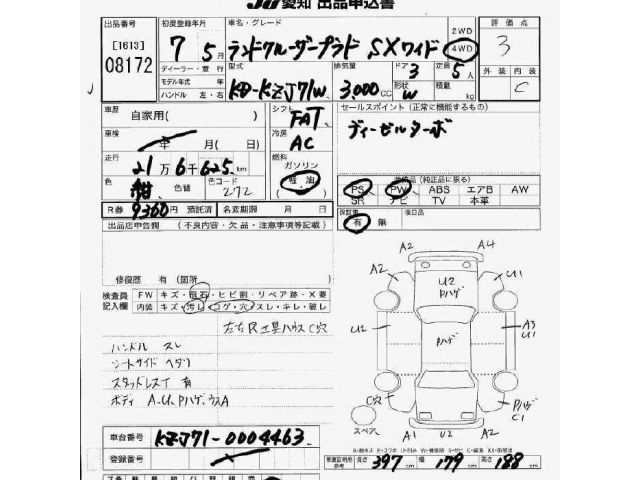 JU愛知 出品申込書
出品番号
[1613]
08172
初度登録年月
7 5月
ディーラー・並行
モデル年式 年
ハンドル 左・右
車名・グレード
ランドクルーザープラド SXワイド
2WD
4WD
型式
KD-KZJ71W
排気量
3,000cc
ドア 3
形状 W
定員 5人
積載 kg
評価点
3
外装 内装
C
車歴
自家用( )
車検
年 月( 日)
走行
21万6千625km
色
紺
色替
色コード
272
シフト
FAT
冷房
AC
燃料
ガソリン
軽油
セールスポイント(正常に機能するもの)
ディーゼルターボ
装備品(純正品に限る)
PS PW ABS エアB AW
SR ナビ TV 本革
保証書
有 無
後日品
R券 9360円 預託済 名変期限 月 日
出品店申告欄 (不良内容・欠品・注意事項等記載)
修復歴 有(箇所 )
検査員
記入欄
FW キズ・飛石・ヒビ割・リペア跡・X要
内装 キズ・汚れ・コゲ・穴・スレ・キレ・破レ
左右R工具ハウスC穴
ハンドル スレ
シートサイド ヘタリ
スタッドレスT 有
ボディ A.U.Pハゲ.ウスA
A2 A4
A2 U2 Pハゲ U1
U2 Pハゲ A3 U1
C穴 Pハゲ C1
スペア
A1 U2 A2
車台番号 KZJ71-0004463
登録番号
長さ 397cm 幅 179cm 高さ 188cm